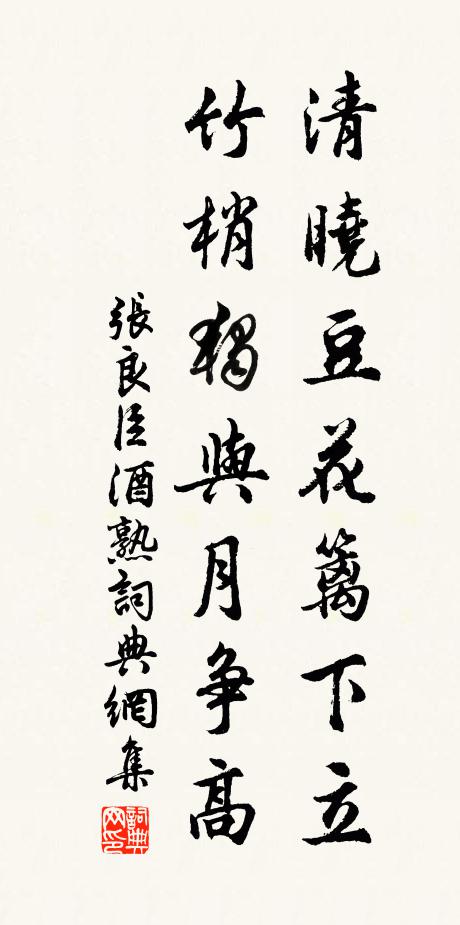 清曉豆花籬下立
竹梢獨與月争高
張良臣酒熟詞典網集
詞典网印